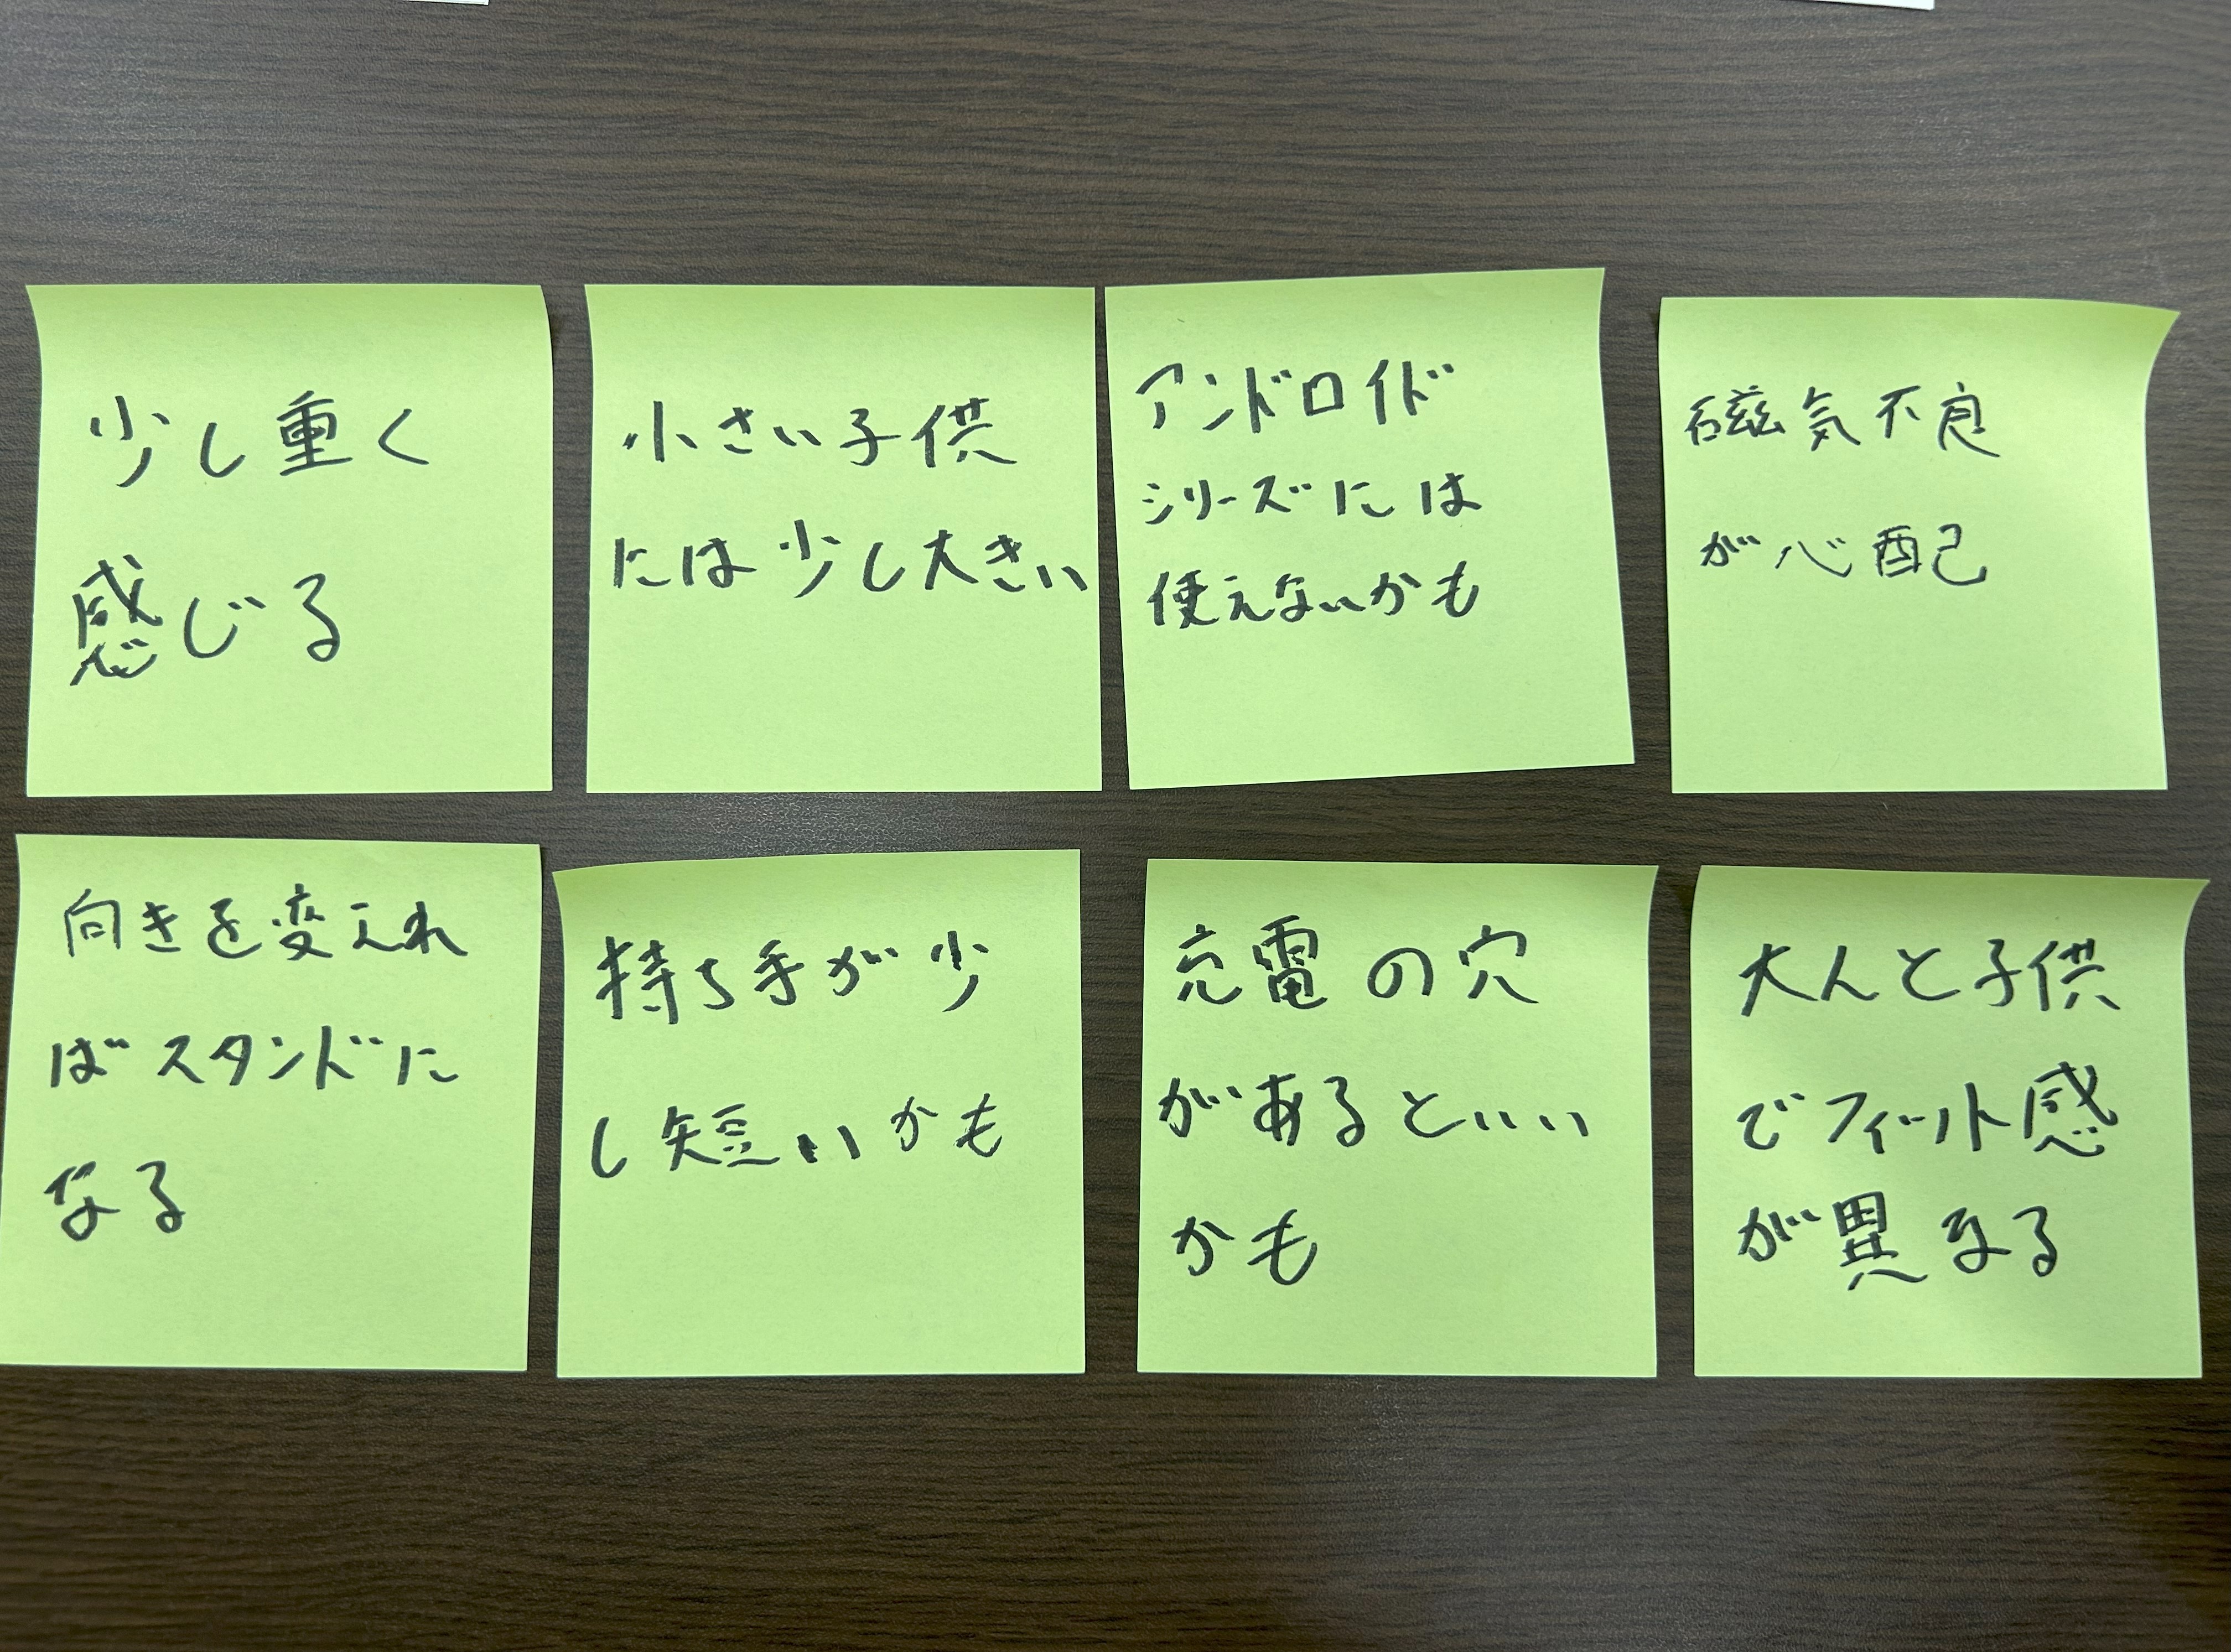 少し重く
感じる
小さい子供
には少し大きい
アンドロイド
シリーズには
使えないかも
磁気不良
が心配
向きを変えれ
ばスタンドに
なる
持ち手が少
し短いかも
充電の穴
があるといい
かも
大人と子供
でフィット感
が異なる